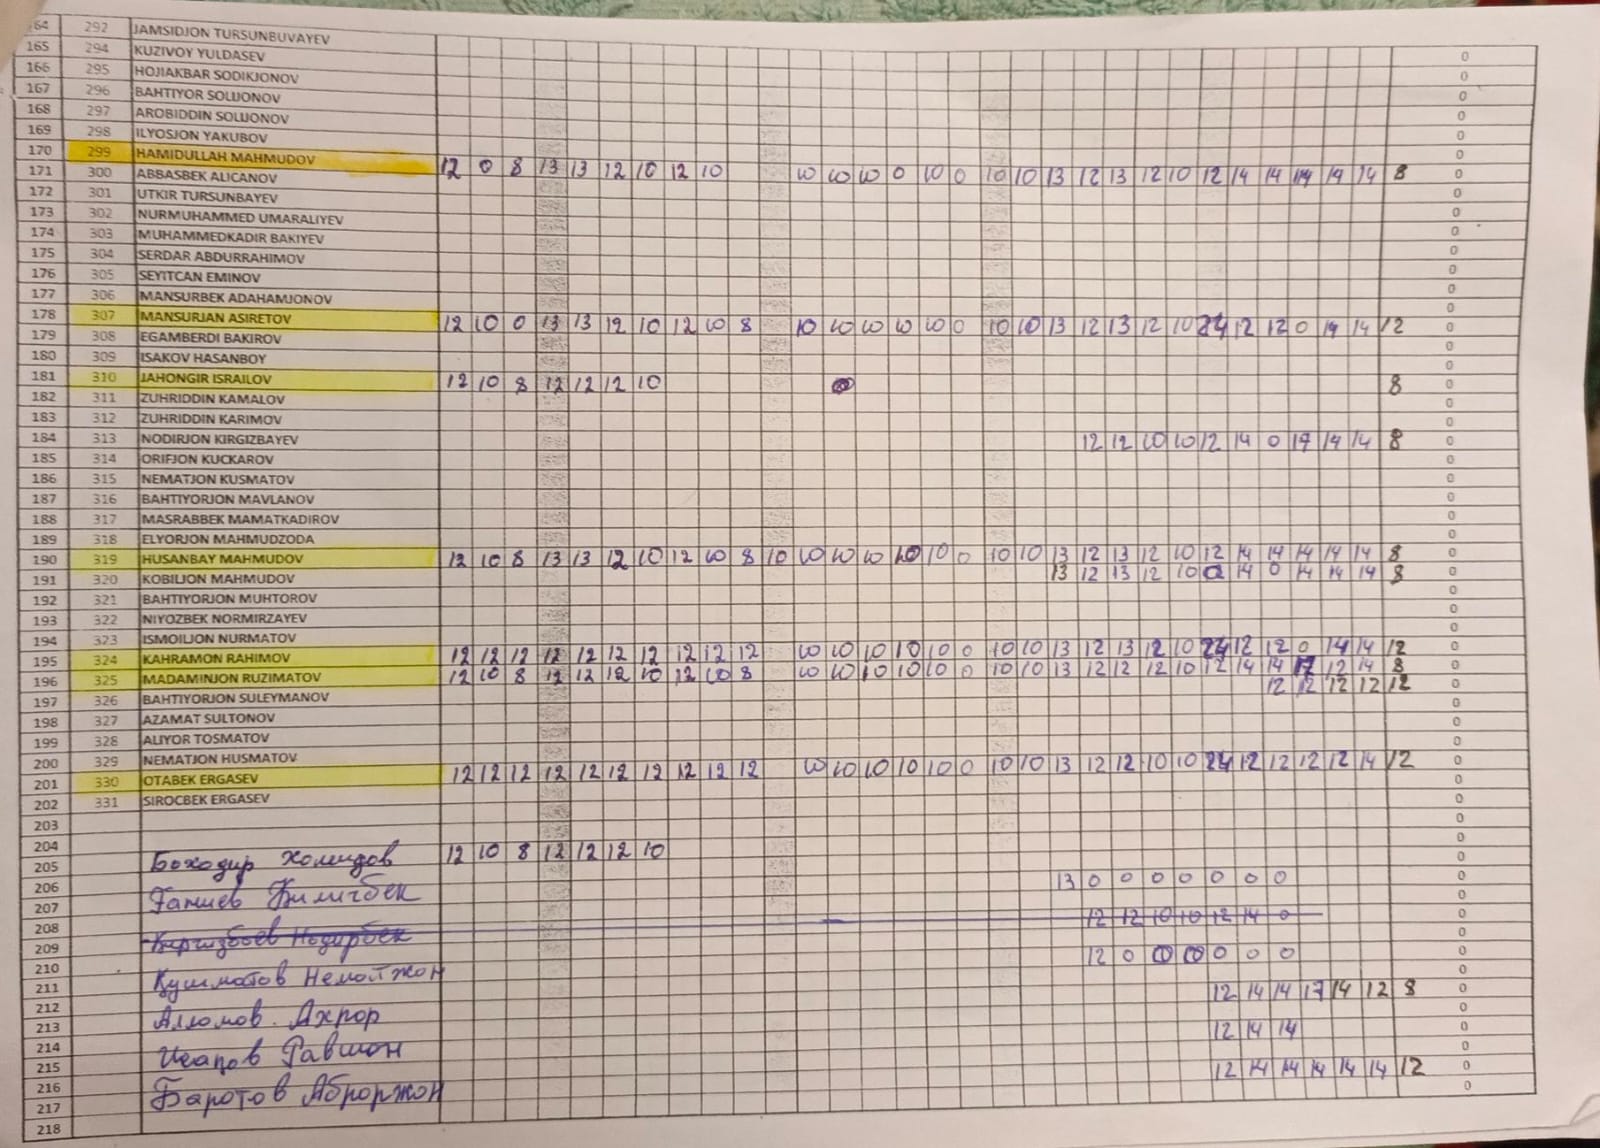 164 292 JAMSIDJON TURSUNBUVAYEV
165 294 KUZIVOY YULDASEV 0
166 295 HOJIAKBAR SODIKJONOV 0
167 296 BAHTIYOR SOLIJONOV 0
168 297 AROBIDDIN SOLIJONOV 0
169 298 ILYOSJON YAKUBOV 0
170 299 HAMIDULLAH MAHMUDOV 12 0 8 13 13 12 10 12 10 10 10 10 0 10 0 10 10 13 12 13 12 10 12 14 14 14 14 14 8 0
171 300 ABBASBEK ALICANOV 0
172 301 UTKIR TURSUNBAYEV 0
173 302 NURMUHAMMED UMARALIYEV 0
174 303 MUHAMMEDKADIR BAKIYEV 0
175 304 SERDAR ABDURRAHIMOV 0
176 305 SEYITCAN EMINOV 0
177 306 MANSURBEK ADAHAMJONOV 0
178 307 MANSURJAN ASIRETOV 12 10 0 13 13 12 10 12 10 8 10 10 10 10 10 0 10 10 13 12 13 12 10 24 12 12 0 14 14 12 0
179 308 EGAMBERDI BAKIROV 0
180 309 ISAKOV HASANBOY 0
181 310 JAHONGIR ISRAILOV 12 10 8 12 12 12 10 8 0
182 311 ZUHRIDDIN KAMALOV 0
183 312 ZUHRIDDIN KARIMOV 0
184 313 NODIRJON KIRGIZBAYEV 12 12 10 10 12 14 0 17 14 14 8 0
185 314 ORIFJON KUCKAROV 0
186 315 NEMATJON KUSMATOV 0
187 316 BAHTIYORJON MAVLANOV 0
188 317 MASRABBEK MAMATKADIROV 0
189 318 ELYORJON MAHMUDZODA 0
190 319 HUSANBAY MAHMUDOV 12 10 8 13 13 12 10 12 10 8 10 10 10 10 10 10 0 10 10 13 12 13 12 10 12 14 14 14 14 14 8 0
191 320 KOBILJON MAHMUDOV 13 12 13 12 10 0 14 0 14 14 14 8 0
192 321 BAHTIYORJON MUHTOROV 0
193 322 NIYOZBEK NORMIRZAYEV 0
194 323 ISMOILJON NURMATOV 0
195 324 KAHRAMON RAHIMOV 12 12 12 12 12 12 12 12 12 12 10 10 10 10 10 0 10 10 13 12 13 12 10 24 12 12 0 14 14 12 0
196 325 MADAMINJON RUZIMATOV 12 10 8 12 12 12 10 12 10 8 10 10 10 10 10 0 10 10 13 12 12 12 10 12 14 14 17 12 14 8 0
197 326 BAHTIYORJON SULEYMANOV 12 12 12 12 12 0
198 327 AZAMAT SULTONOV 0
199 328 ALIYOR TOSMATOV 0
200 329 NEMATJON HUSMATOV 0
201 330 OTABEK ERGASEV 12 12 12 12 12 12 12 12 12 12 10 10 10 10 10 0 10 10 13 12 12 10 10 24 12 12 12 12 14 12 0
202 331 SIROCBEK ERGASEV 0
203 0
204 0
205 Боходир Холмидов 12 10 8 12 12 12 10 0
206 0
207 Ганиев Килигбек 13 0 0 0 0 0 0 0 0
208 0
209 Киргизбоев Нодирбек 12 12 10 10 12 14 0 0
210 0
211 Қушматов Немотжон 12 0 0 0 0 0 0 0
212 0
213 Алломов Ахрор 12 14 14 17 14 12 8 0
214 0
215 Исаков Равшон 12 14 14 0
216 0
217 Баротов Аброржон 12 14 14 14 14 14 12 0
218 0